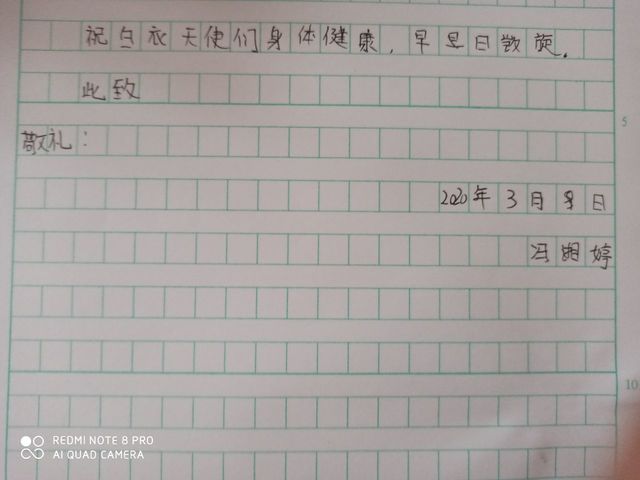 祝白衣天使们身体健康，早早日敳旋.
此致
敬礼：
2020年3月8日
冯姻婷
5
10
REDMI NOTE 8 PRO
AI QUAD CAMERA